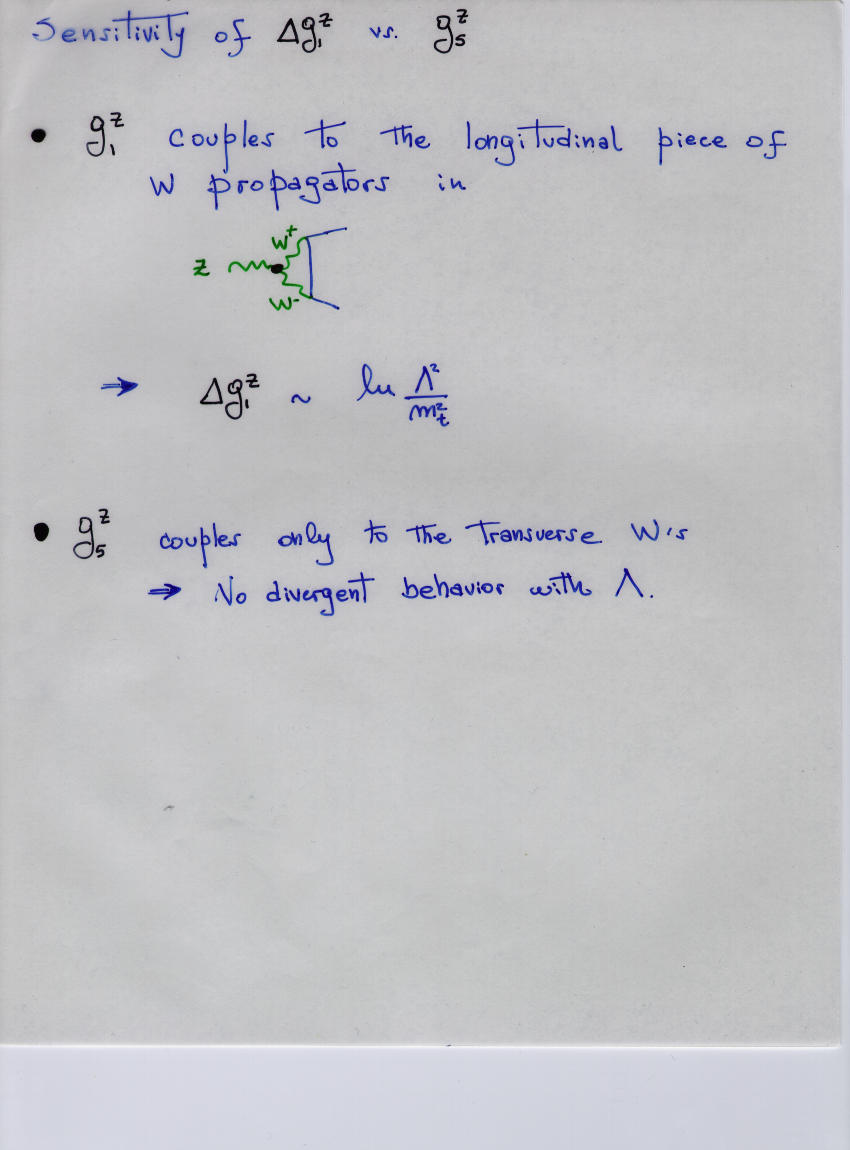 Sensitivity of Δg₁ᶻ vs. g₅ᶻ
• g₁ᶻ couples to the longitudinal piece of
W propagators in
W⁺
Z
W⁻
⇒ Δg₁ᶻ ~ ln Λ²/mₜ²
• g₅ᶻ couples only to the transverse W's
⇒ No divergent behavior with Λ.